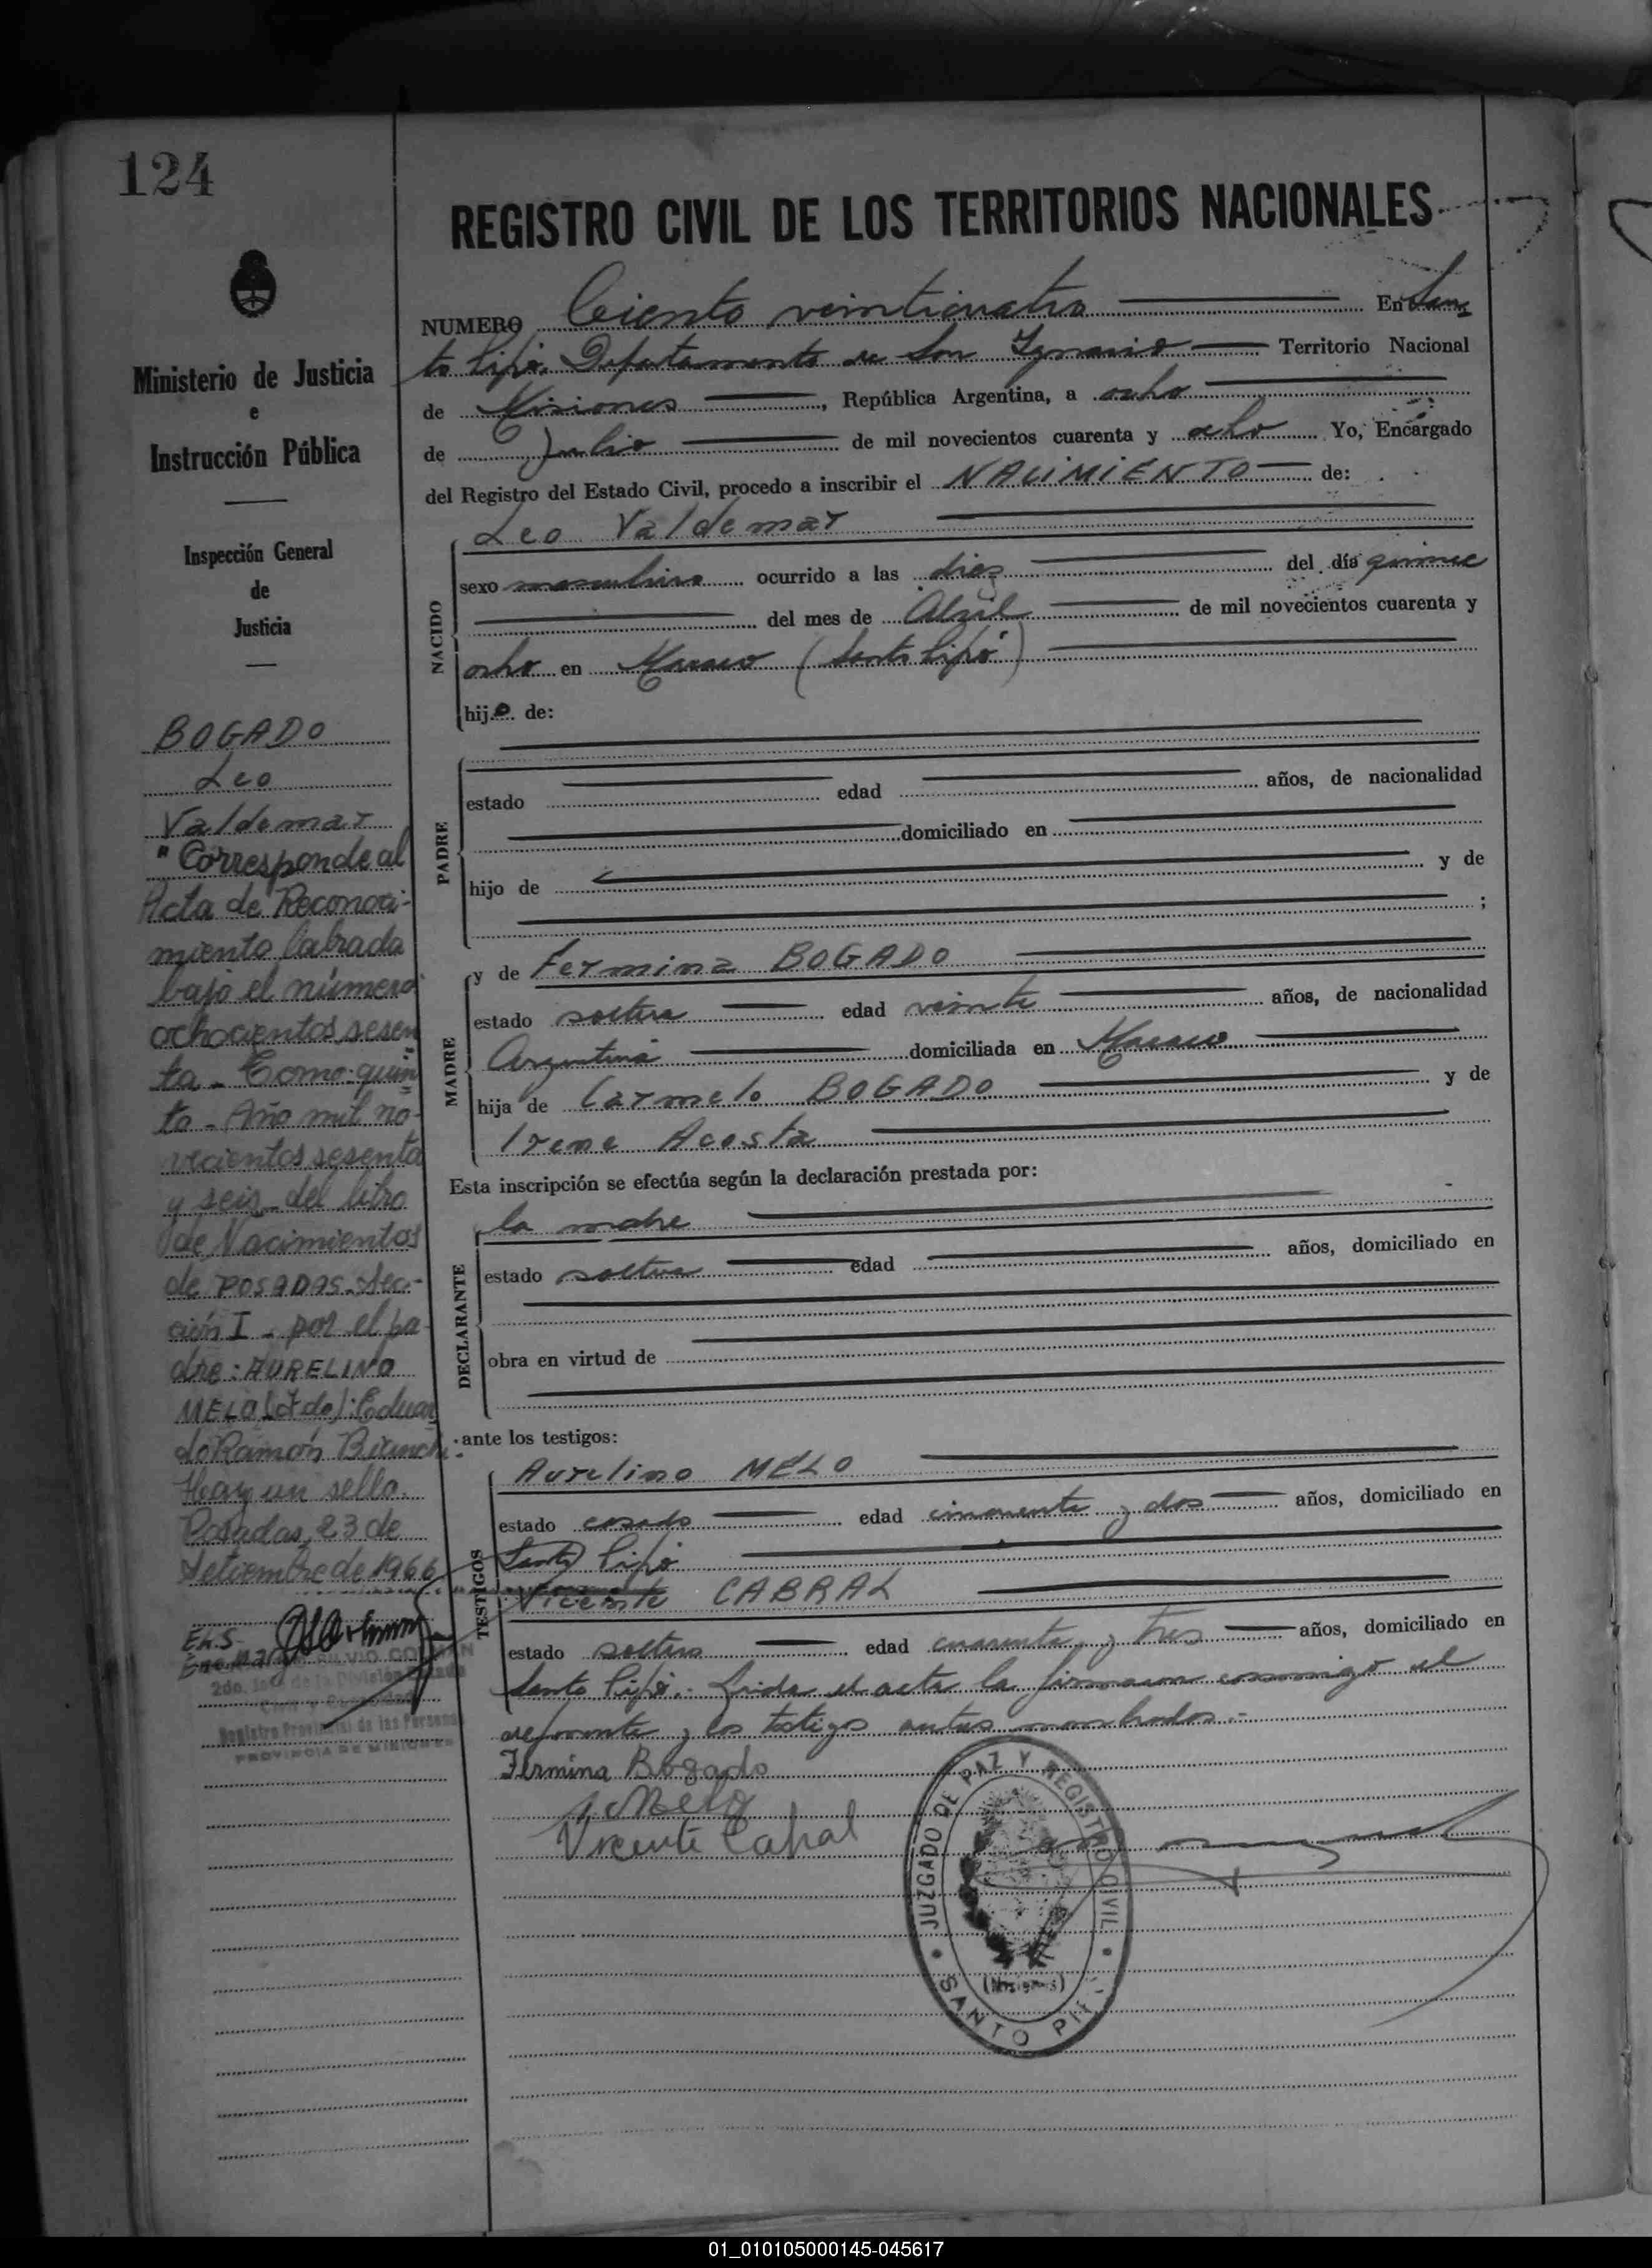 124
Ministerio de Justicia
e
Instrucción Pública
Inspección General
de
Justicia
BOGADO
Leo
Valdemar
"Corresponde al
Acta de Reconoci-
miento labrada
bajo el número
ochocientos sesen
ta - Tomo: quin
to - Año mil no-
vecientos sesenta
y seis - del libro
de Nacimientos
de POSADAS - Sec-
ción I - por el pa-
dre: AURELINO
MELO (Fdo): Eduar
do Ramón Bianchi
Hay un sello.
Posadas, 23 de
Setiembre de 1966
2do. Jefe de la División
Registro Provincial de las Personas
PROVINCIA DE MISIONES
REGISTRO CIVIL DE LOS TERRITORIOS NACIONALES
NUMERO Ciento veinticuatro En San
to Pipó, Departamento de San Ignacio Territorio Nacional
de Misiones, República Argentina, a ocho
de Julio de mil novecientos cuarenta y ocho Yo, Encargado
del Registro del Estado Civil, procedo a inscribir el NACIMIENTO de:
NACIDO
Leo Valdemar
sexo masculino ocurrido a las diez del día quince
del mes de Abril de mil novecientos cuarenta y
ocho en (Santo Pipó)
hijo de:
PADRE
estado edad años, de nacionalidad
domiciliado en
hijo de y de
;
MADRE
y de Fermina BOGADO
estado soltera edad veinte años, de nacionalidad
Argentina domiciliada en
hija de Carmelo BOGADO y de
Irene Acosta
Esta inscripción se efectúa según la declaración prestada por:
DECLARANTE
la madre
estado soltera edad años, domiciliado en
obra en virtud de
ante los testigos:
TESTIGOS
Aurelino MELO
estado casado edad cincuenta y dos años, domiciliado en
Santo Pipó
Vicente CABRAL
estado soltero edad cuarenta y tres años, domiciliado en
Santo Pipó.- Leída el acta la firmaron conmigo el
deponente y los testigos antes nombrados.-
Fermina Bogado
A. Melo
Vicente Cabral
JUZGADO DE PAZ Y REGISTRO CIVIL
(Misiones)
SANTO PIPÓ
01_010105000145-045617